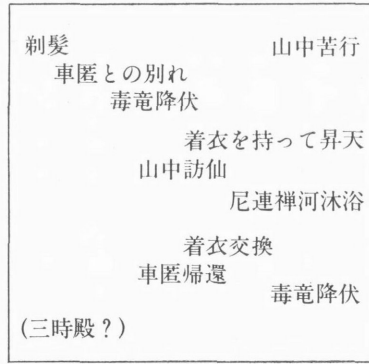 剃髪
山中苦行
車匿との別れ
毒竜降伏
着衣を持って昇天
山中訪仙
尼連禅河沐浴
着衣交換
車匿帰還
毒竜降伏
(三時殿?)